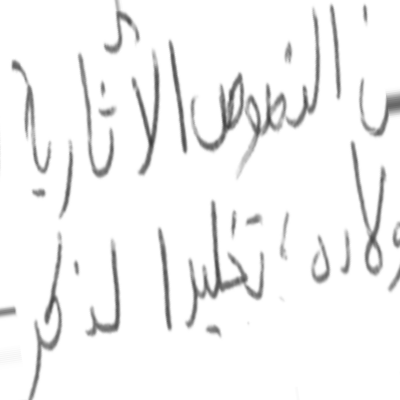 من النصوص الأثارية
ولاده ، تخليدا لذكر